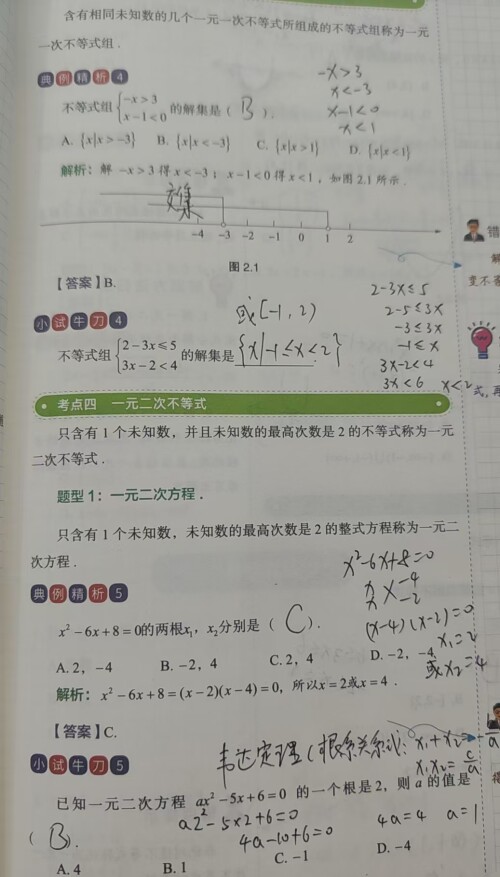 含有相同未知数的几个一元一次不等式所组成的不等式组称为一元
一次不等式组.
典例精析4
-x>3
x<-3
不等式组{-x>3 x-1<0 的解集是( B ).
x-1<0
x<1
A. {x|x>-3} B. {x|x<-3} C. {x|x>1} D. {x|x<1}
解析:解 -x>3 得 x<-3;x-1<0 得 x<1,如图 2.1 所示.
交集
-4 -3 -2 -1 0 1 2
图 2.1
【答案】B.
小试牛刀4
或[-1,2)
不等式组{2-3x≤5 3x-2<4 的解集是 {x|-1≤x<2}
2-3x≤5
2-5≤3x
-3≤3x
-1≤x
3x-2<4
3x<6 x<2
考点四 一元二次不等式
只含有1个未知数,并且未知数的最高次数是2的不等式称为一元
二次不等式.
题型1:一元二次方程.
只含有1个未知数,未知数的最高次数是2的整式方程称为一元二
次方程.
x²-6x+8=0
x -4
x -2
(x-4)(x-2)=0
x₁=2
或x₂=4
典例精析5
x²-6x+8=0的两根x₁,x₂分别是( C ).
A. 2,-4 B. -2,4 C. 2,4 D. -2,-4
解析:x²-6x+8=(x-2)(x-4)=0,所以x=2或x=4.
【答案】C.
韦达定理(根系关系式):x₁+x₂=-
a
x₁x₂=c/a
小试牛刀5
已知一元二次方程 ax²-5x+6=0 的一个根是2,则a的值是
( B ).
a2²-5×2+6=0
4a-10+6=0
4a=4 a=1
A. 4 B. 1 C. -1 D. -4
错
解
变不
式,再